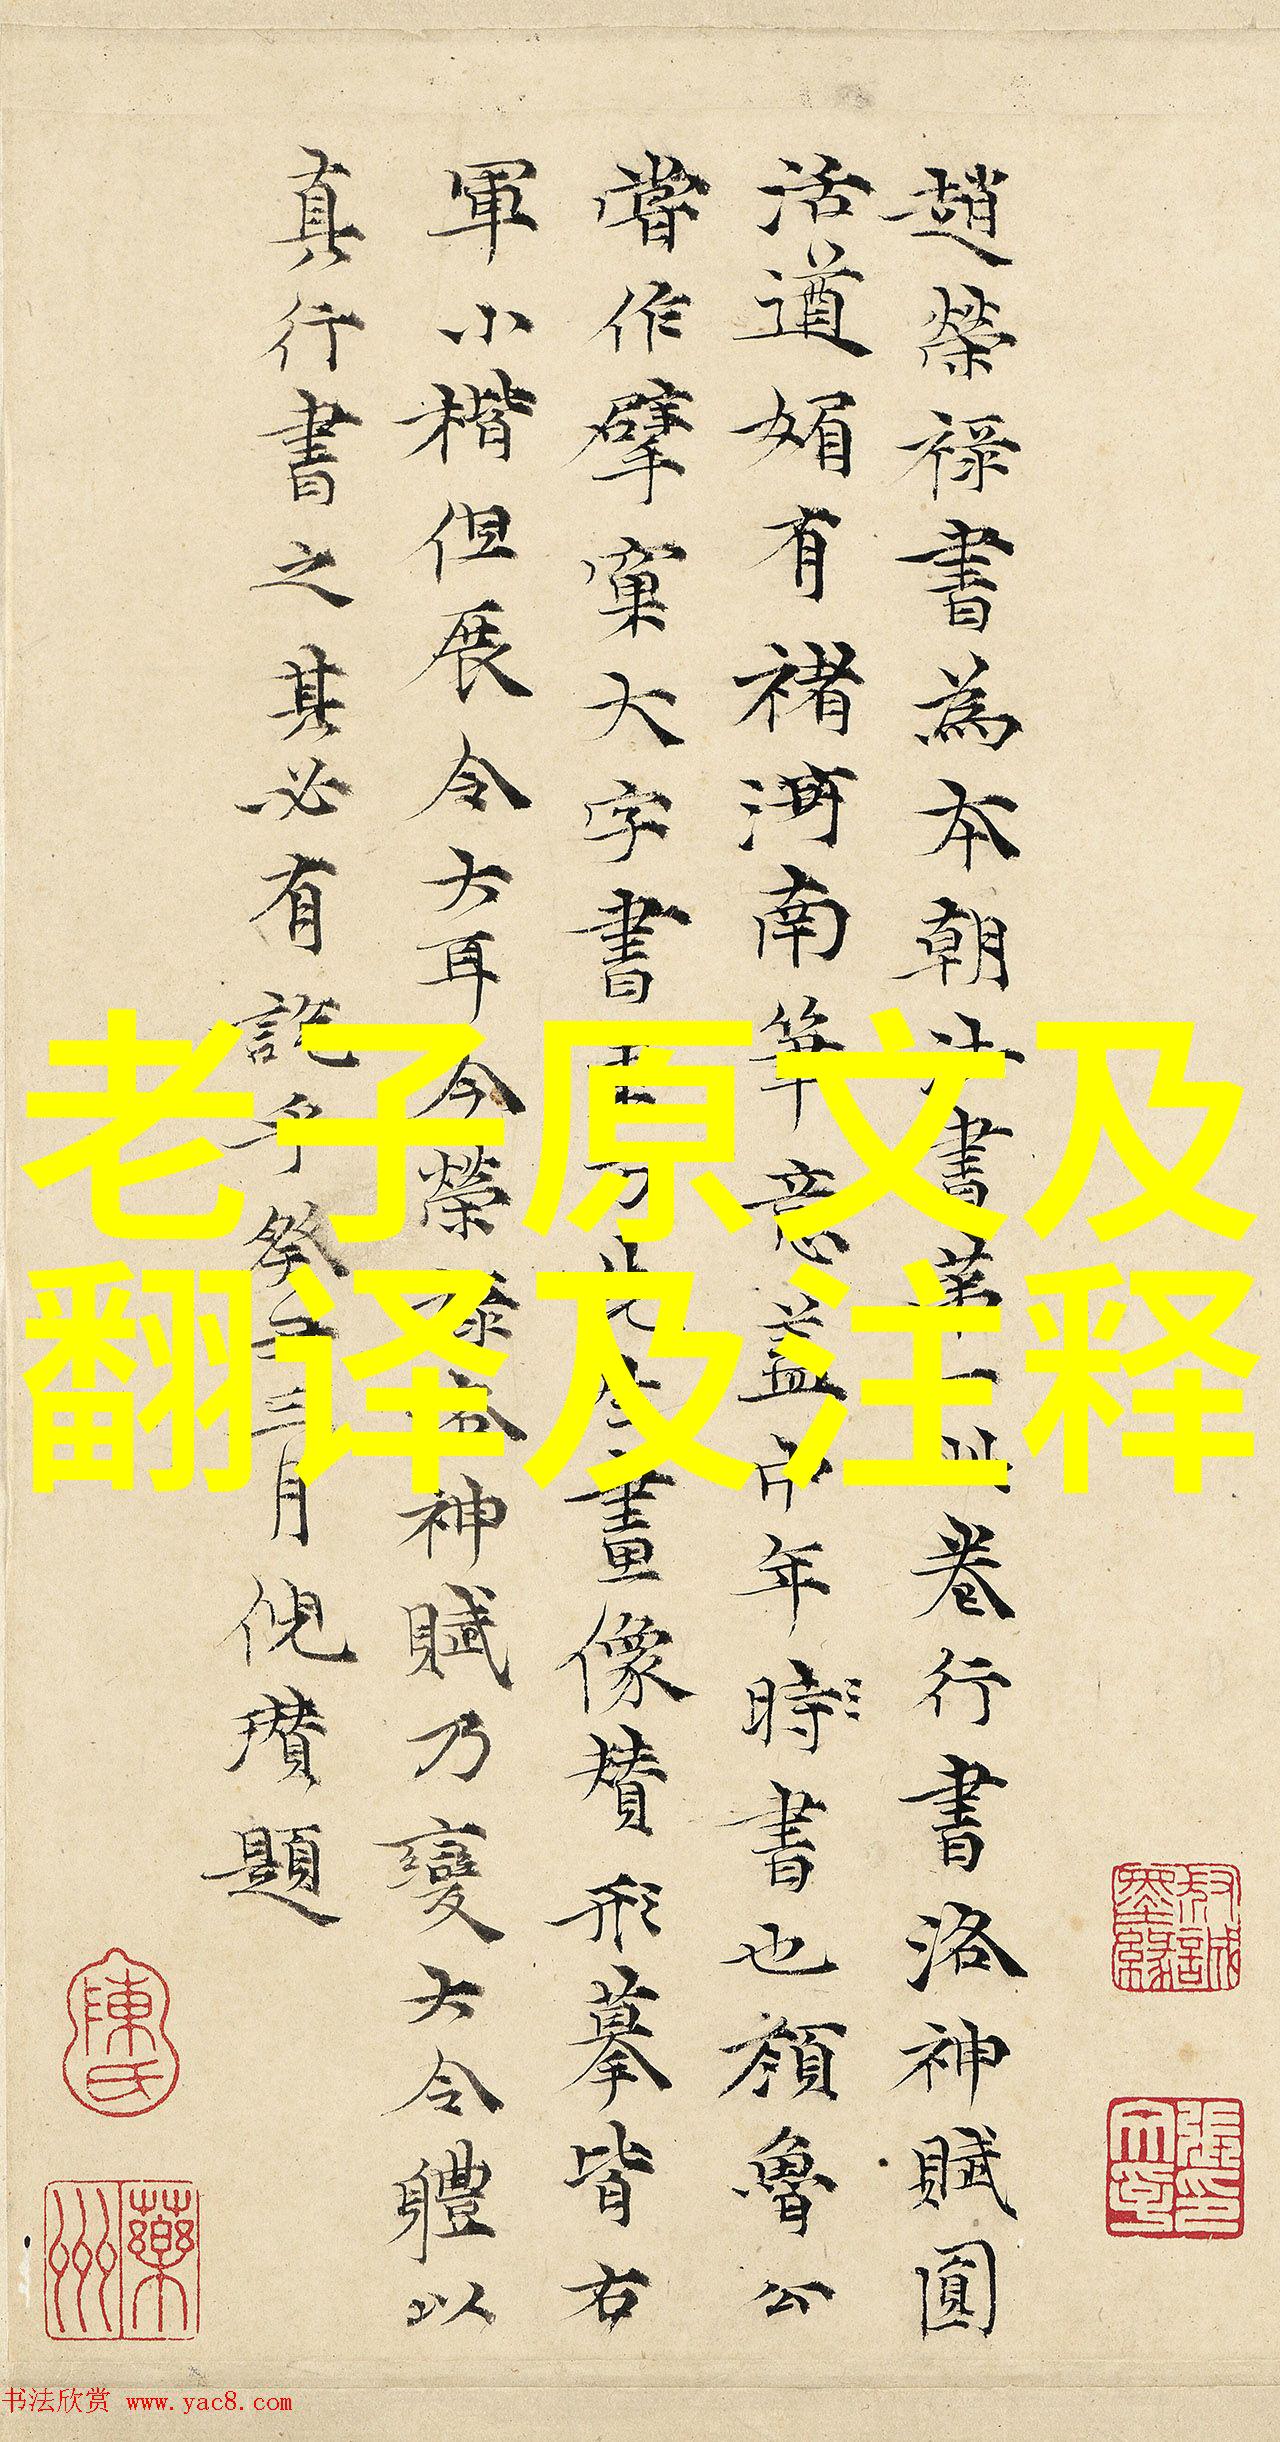 趙榮祿書為本朝書第一此卷行書洛神賦圓
活遒媚有褚河南筆意蓋中年時書也顏魯公
嘗作擘窠大字書方先生畫像賛形摹皆右
軍小楷但展令大耳今榮祿洛神賦乃變大令體以
真行書之其必有説乎癸丑三月倪瓚題
老子原文及
翻译及注释
陳氏
书法欣赏 www.yac8.com